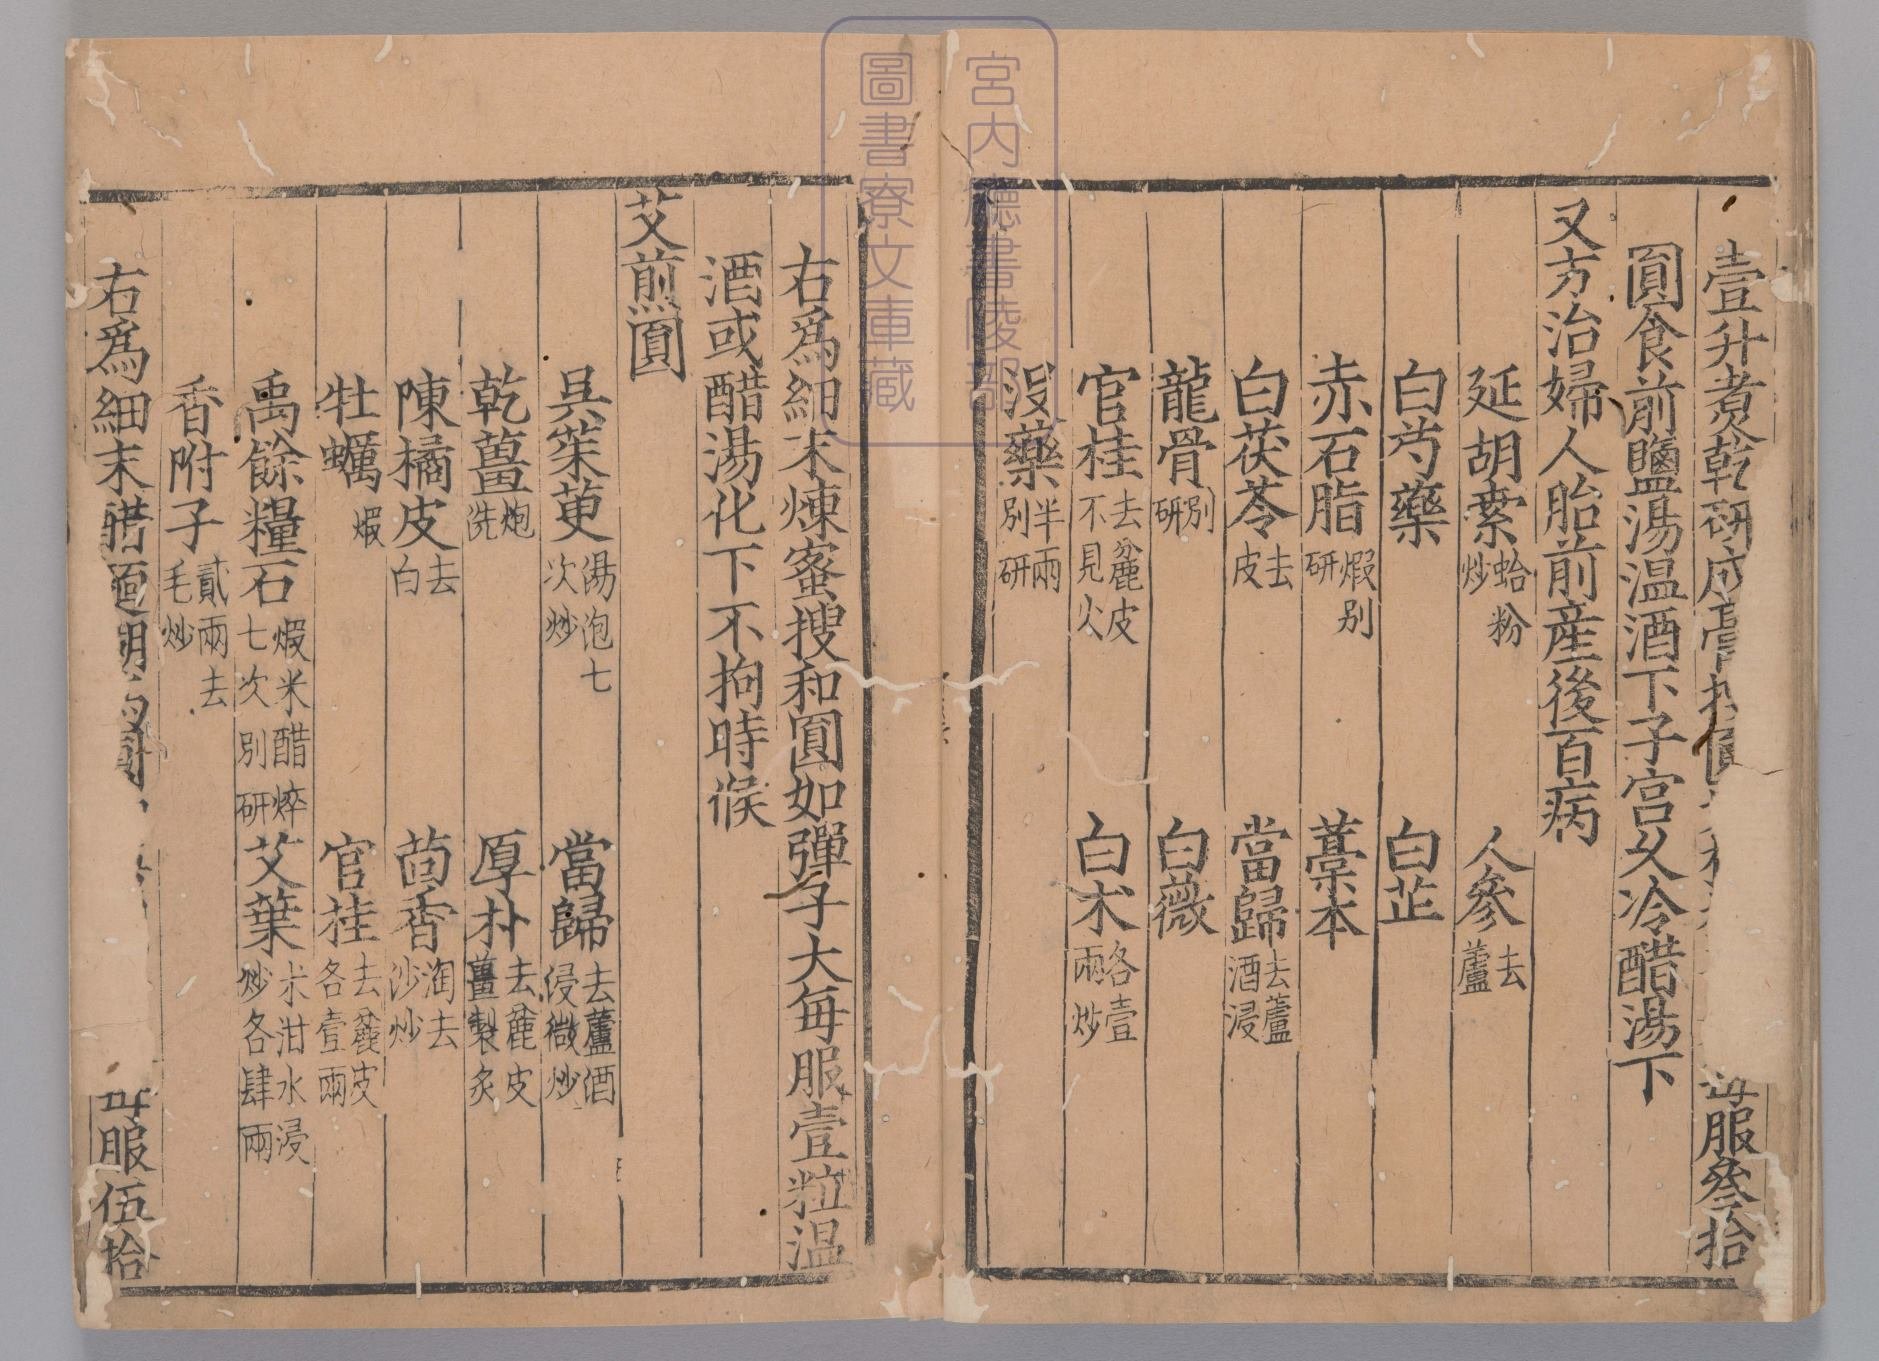 壹升煮乾研成膏
每服叄拾
圓食前鹽湯温酒下子宫久冷醋湯下
又方治婦人胎前産後百病
延胡索蛤粉炒 人參去蘆
白芍藥 白芷
赤石脂煆别研 藁本
白茯苓去皮 當歸去蘆酒浸
龍骨别研 白薇
官桂去麄皮不見火 白朮各壹兩炒
没藥半兩别研
右爲細末煉蜜搜和圓如彈子大每服壹粒温
酒或醋湯化下不拘時候
艾煎圓
呉茱萸湯泡七次炒 當歸去蘆酒浸微炒
乾薑炮洗 厚朴去麄皮薑製炙
陳橘皮去白 茴香淘去沙炒
牡蠣煆 官桂去麄皮各壹兩
禹餘糧石煆米醋焠七次别研 艾葉米泔水浸炒各肆兩
香附子貳兩去毛炒
右爲細末醋麺糊爲圓
每服伍拾
宮内廳書陵部
圖書寮文庫藏